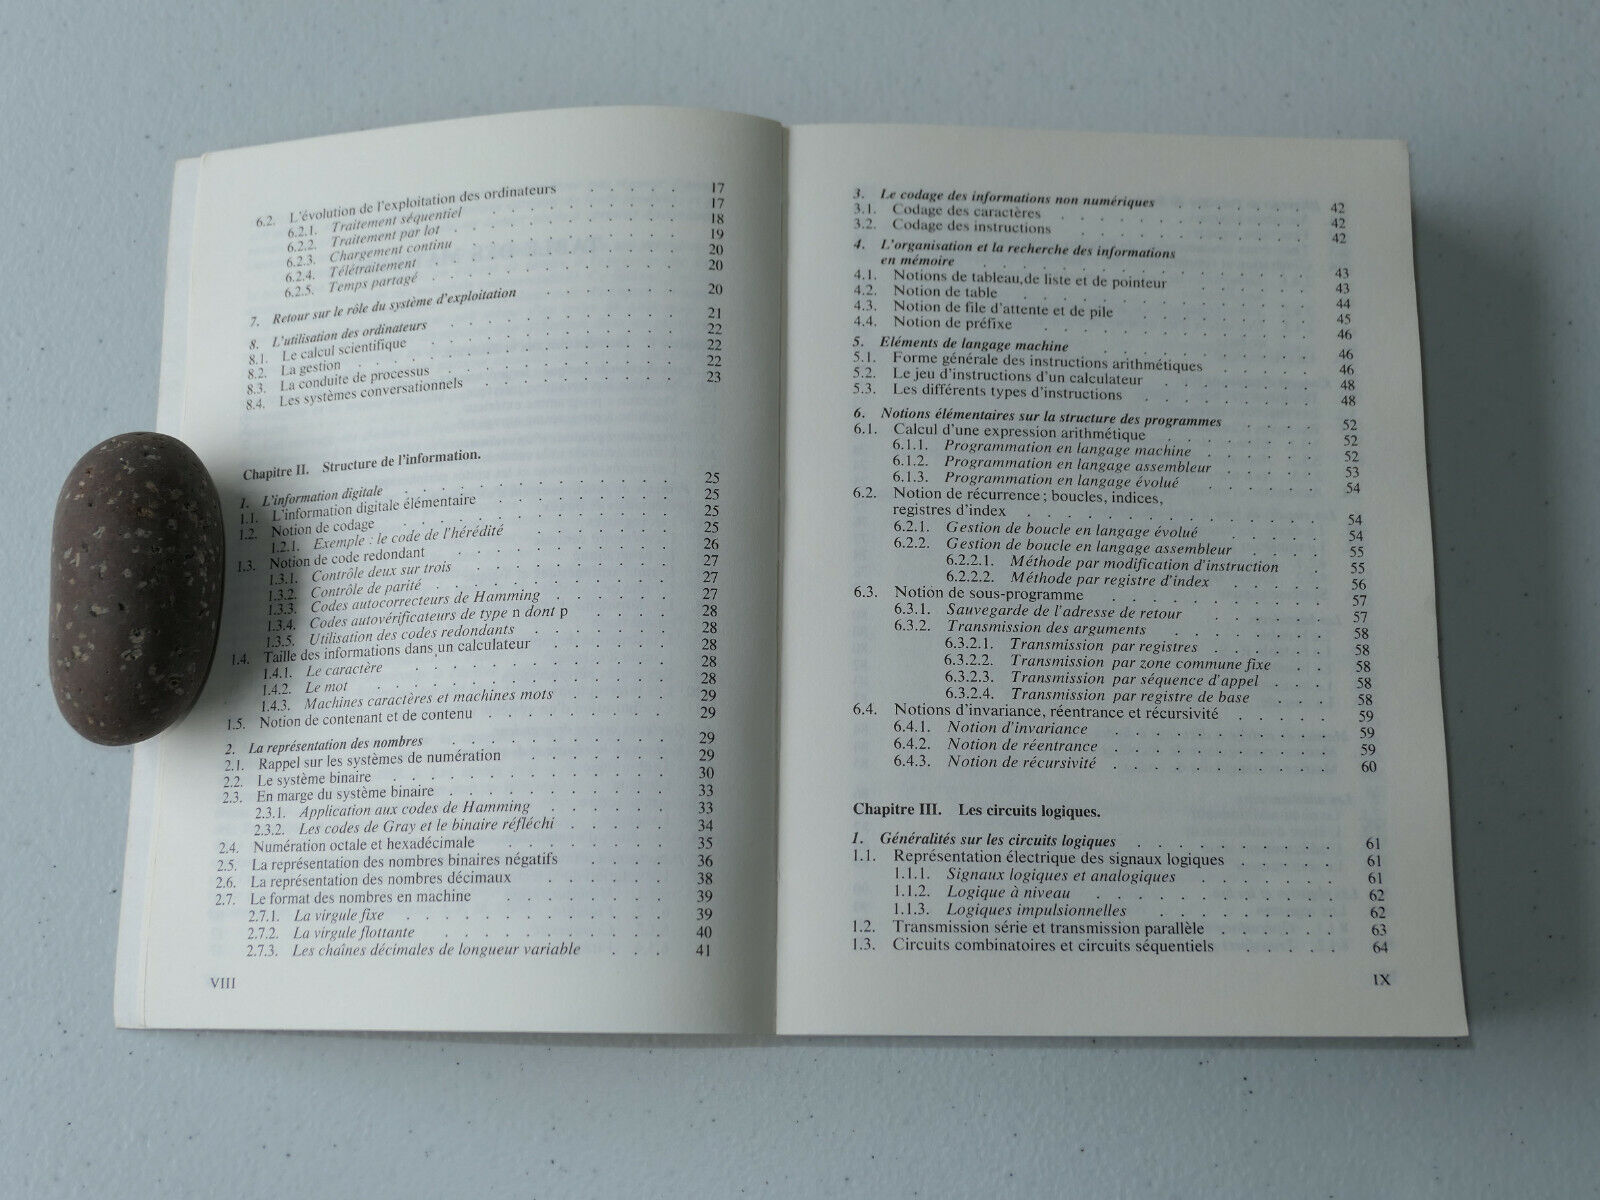 6.2. L'évolution de l'exploitation des ordinateurs . . . . . 17
6.2.1. Traitement séquentiel . . . . . . . . . 17
6.2.2. Traitement par lot . . . . . . . . . . 18
6.2.3. Chargement continu . . . . . . . . . 19
6.2.4. Télétraitement . . . . . . . . . . . 20
6.2.5. Temps partagé . . . . . . . . . . . 20
7. Retour sur le rôle du système d'exploitation . . . . . . 20
8. L'utilisation des ordinateurs . . . . . . . . . . 21
8.1. Le calcul scientifique . . . . . . . . . . . 22
8.2. La gestion . . . . . . . . . . . . . 22
8.3. La conduite de processus . . . . . . . . . . 22
8.4. Les systèmes conversationnels . . . . . . . . 23
Chapitre II. Structure de l'information.
1. L'information digitale . . . . . . . . . . . 25
1.1. L'information digitale élémentaire . . . . . . . . 25
1.2. Notion de codage . . . . . . . . . . . . 25
1.2.1. Exemple : le code de l'hérédité . . . . . . . 25
1.3. Notion de code redondant . . . . . . . . . . 26
1.3.1. Contrôle deux sur trois . . . . . . . . . 27
1.3.2. Contrôle de parité . . . . . . . . . . 27
1.3.3. Codes autocorrecteurs de Hamming . . . . . . 27
1.3.4. Codes autovérificateurs de type n dont p . . . . 28
1.3.5. Utilisation des codes redondants . . . . . . 28
1.4. Taille des informations dans un calculateur . . . . . . 28
1.4.1. Le caractère . . . . . . . . . . . 28
1.4.2. Le mot . . . . . . . . . . . . 28
1.4.3. Machines caractères et machines mots . . . . . 29
1.5. Notion de contenant et de contenu . . . . . . . . 29
2. La représentation des nombres . . . . . . . . . 29
2.1. Rappel sur les systèmes de numération . . . . . . . 29
2.2. Le système binaire . . . . . . . . . . . . 30
2.3. En marge du système binaire . . . . . . . . . 33
2.3.1. Application aux codes de Hamming . . . . . . 33
2.3.2. Les codes de Gray et le binaire réfléchi . . . . . 34
2.4. Numération octale et hexadécimale . . . . . . . . 35
2.5. La représentation des nombres binaires négatifs . . . . 36
2.6. La représentation des nombres décimaux . . . . . . 38
2.7. Le format des nombres en machine . . . . . . . . 39
2.7.1. La virgule fixe . . . . . . . . . . . 39
2.7.2. La virgule flottante . . . . . . . . . . 40
2.7.3. Les chaînes décimales de longueur variable . . . 41
VIII
3. Le codage des informations non numériques . . . . . . 42
3.1. Codage des caractères . . . . . . . . . . . 42
3.2. Codage des instructions . . . . . . . . . . 42
4. L'organisation et la recherche des informations
en mémoire . . . . . . . . . . . . . . 43
4.1. Notions de tableau, de liste et de pointeur . . . . . . 43
4.2. Notion de table . . . . . . . . . . . . 44
4.3. Notion de file d'attente et de pile . . . . . . . . 45
4.4. Notion de préfixe . . . . . . . . . . . . 46
5. Eléments de langage machine . . . . . . . . . 46
5.1. Forme générale des instructions arithmétiques . . . . . 46
5.2. Le jeu d'instructions d'un calculateur . . . . . . . 48
5.3. Les différents types d'instructions . . . . . . . . 48
6. Notions élémentaires sur la structure des programmes . . . . 52
6.1. Calcul d'une expression arithmétique . . . . . . . 52
6.1.1. Programmation en langage machine . . . . . . 52
6.1.2. Programmation en langage assembleur . . . . . 53
6.1.3. Programmation en langage évolué . . . . . . 54
6.2. Notion de récurrence ; boucles, indices,
registres d'index . . . . . . . . . . . . 54
6.2.1. Gestion de boucle en langage évolué . . . . . 54
6.2.2. Gestion de boucle en langage assembleur . . . . 55
6.2.2.1. Méthode par modification d'instruction . . 55
6.2.2.2. Méthode par registre d'index . . . . . 56
6.3. Notion de sous-programme . . . . . . . . . 57
6.3.1. Sauvegarde de l'adresse de retour . . . . . . 57
6.3.2. Transmission des arguments . . . . . . . 58
6.3.2.1. Transmission par registres . . . . . 58
6.3.2.2. Transmission par zone commune fixe . . 58
6.3.2.3. Transmission par séquence d'appel . . . 58
6.3.2.4. Transmission par registre de base . . . 58
6.4. Notions d'invariance, réentrance et récursivité . . . . . 59
6.4.1. Notion d'invariance . . . . . . . . . 59
6.4.2. Notion de réentrance . . . . . . . . . 59
6.4.3. Notion de récursivité . . . . . . . . . 60
Chapitre III. Les circuits logiques.
1. Généralités sur les circuits logiques . . . . . . . . 61
1.1. Représentation électrique des signaux logiques . . . . . 61
1.1.1. Signaux logiques et analogiques . . . . . . 61
1.1.2. Logique à niveau . . . . . . . . . . 62
1.1.3. Logiques impulsionnelles . . . . . . . . 62
1.2. Transmission série et transmission parallèle . . . . . . 63
1.3. Circuits combinatoires et circuits séquentiels . . . . . 64
IX